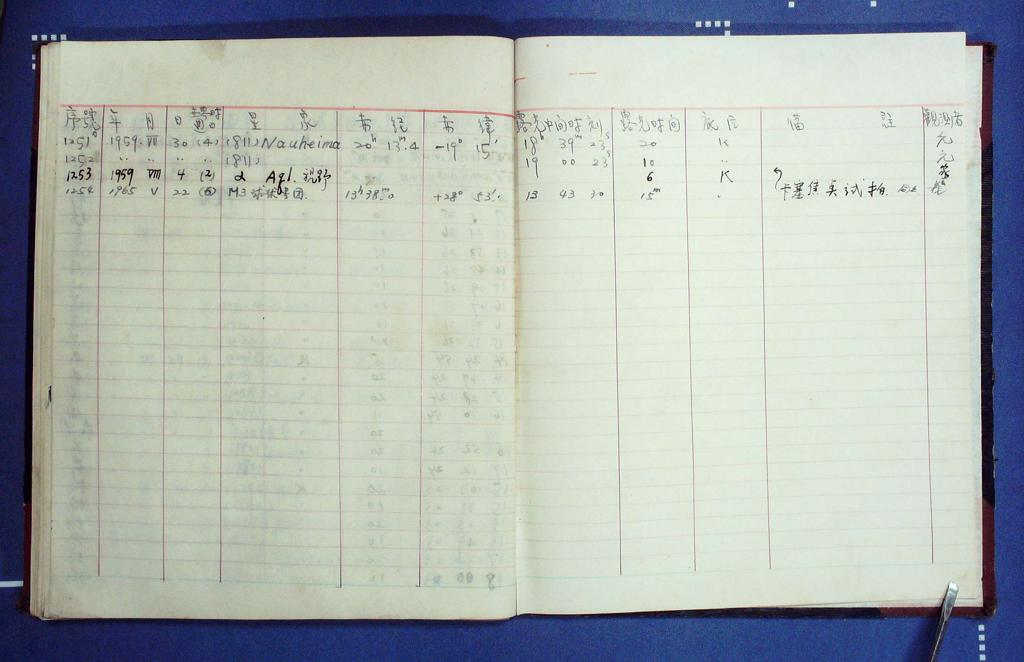 序號 年 月 日 星 象 赤 经 赤 緯 露光中间时刻 露光时间 底片 備 註 觀測者
1251 1959 VII 30 (4) (811) Nauheima 20h 13m.4 -19° 15' 18h 39m 23s 20 K 元
1252 〃 〃 〃 (811) 19 00 23 10 〃 元
1253 1959 VIII 4 (2) α Aql. 視野 6 K
1254 1965 V 22 (6) M3 球状星团. 13h 38m.0 +28° 53' 13 43 30 15m 〃 卡塞焦臭试拍